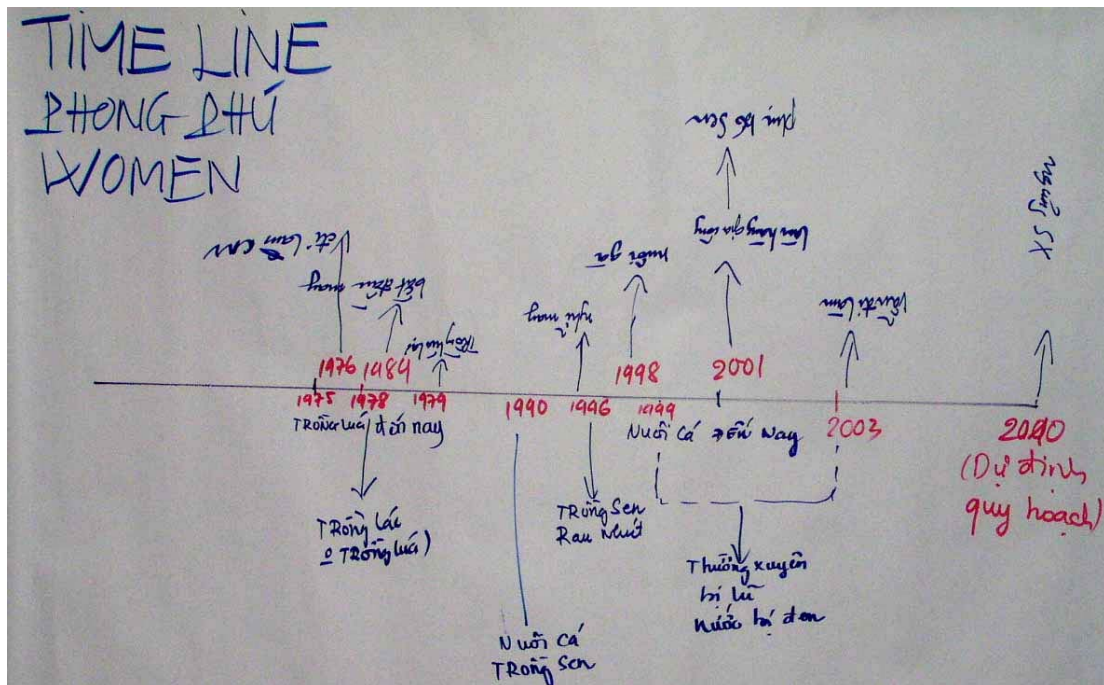 TIME LINE
PHONG PHÚ
WOMEN
phụ bó Sen
Ngừng SX
đi làm CN
bắt đầu
may
Trồng lúa lại
nghỉ may
nuôi gà
làm hàng gia công
vẫn đi làm
1976
1984
1998
2001
1975
1978
1979
1990
1996
1999
2003
2010
TRỒNG LÚA đến nay
NUÔI CÁ ĐẾN NAY
(Dự định
quy hoạch)
TRồng lác
o TRỒNG LÚA)
TRồng Sen
Rau nhút
Thường xuyên
bị lũ
nước bị đen
NUÔI CÁ
TRồng Sen